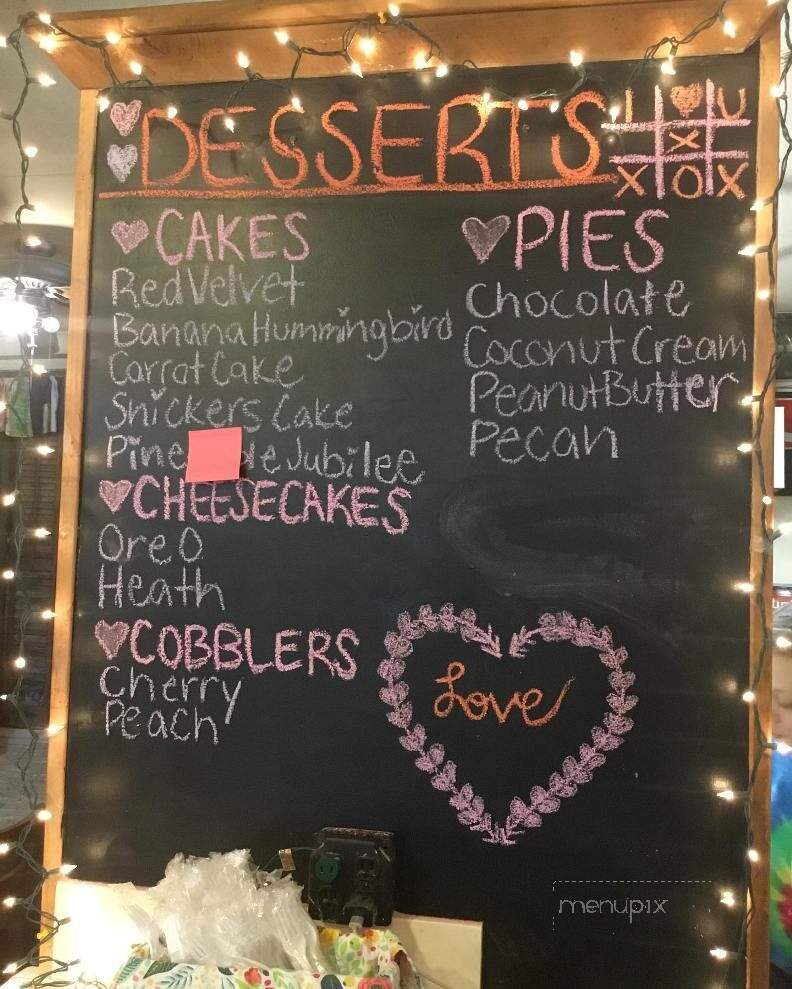 DESSERTS
I U
X
X O X
CAKES
Red Velvet
Banana Hummingbird
Carrot Cake
Snickers Cake
Jubilee
CHEESECAKES
Oreo
Heath
COBBLERS
Cherry
Peach
PIES
Chocolate
Coconut Cream
Peanut Butter
Pecan
Love
menupix